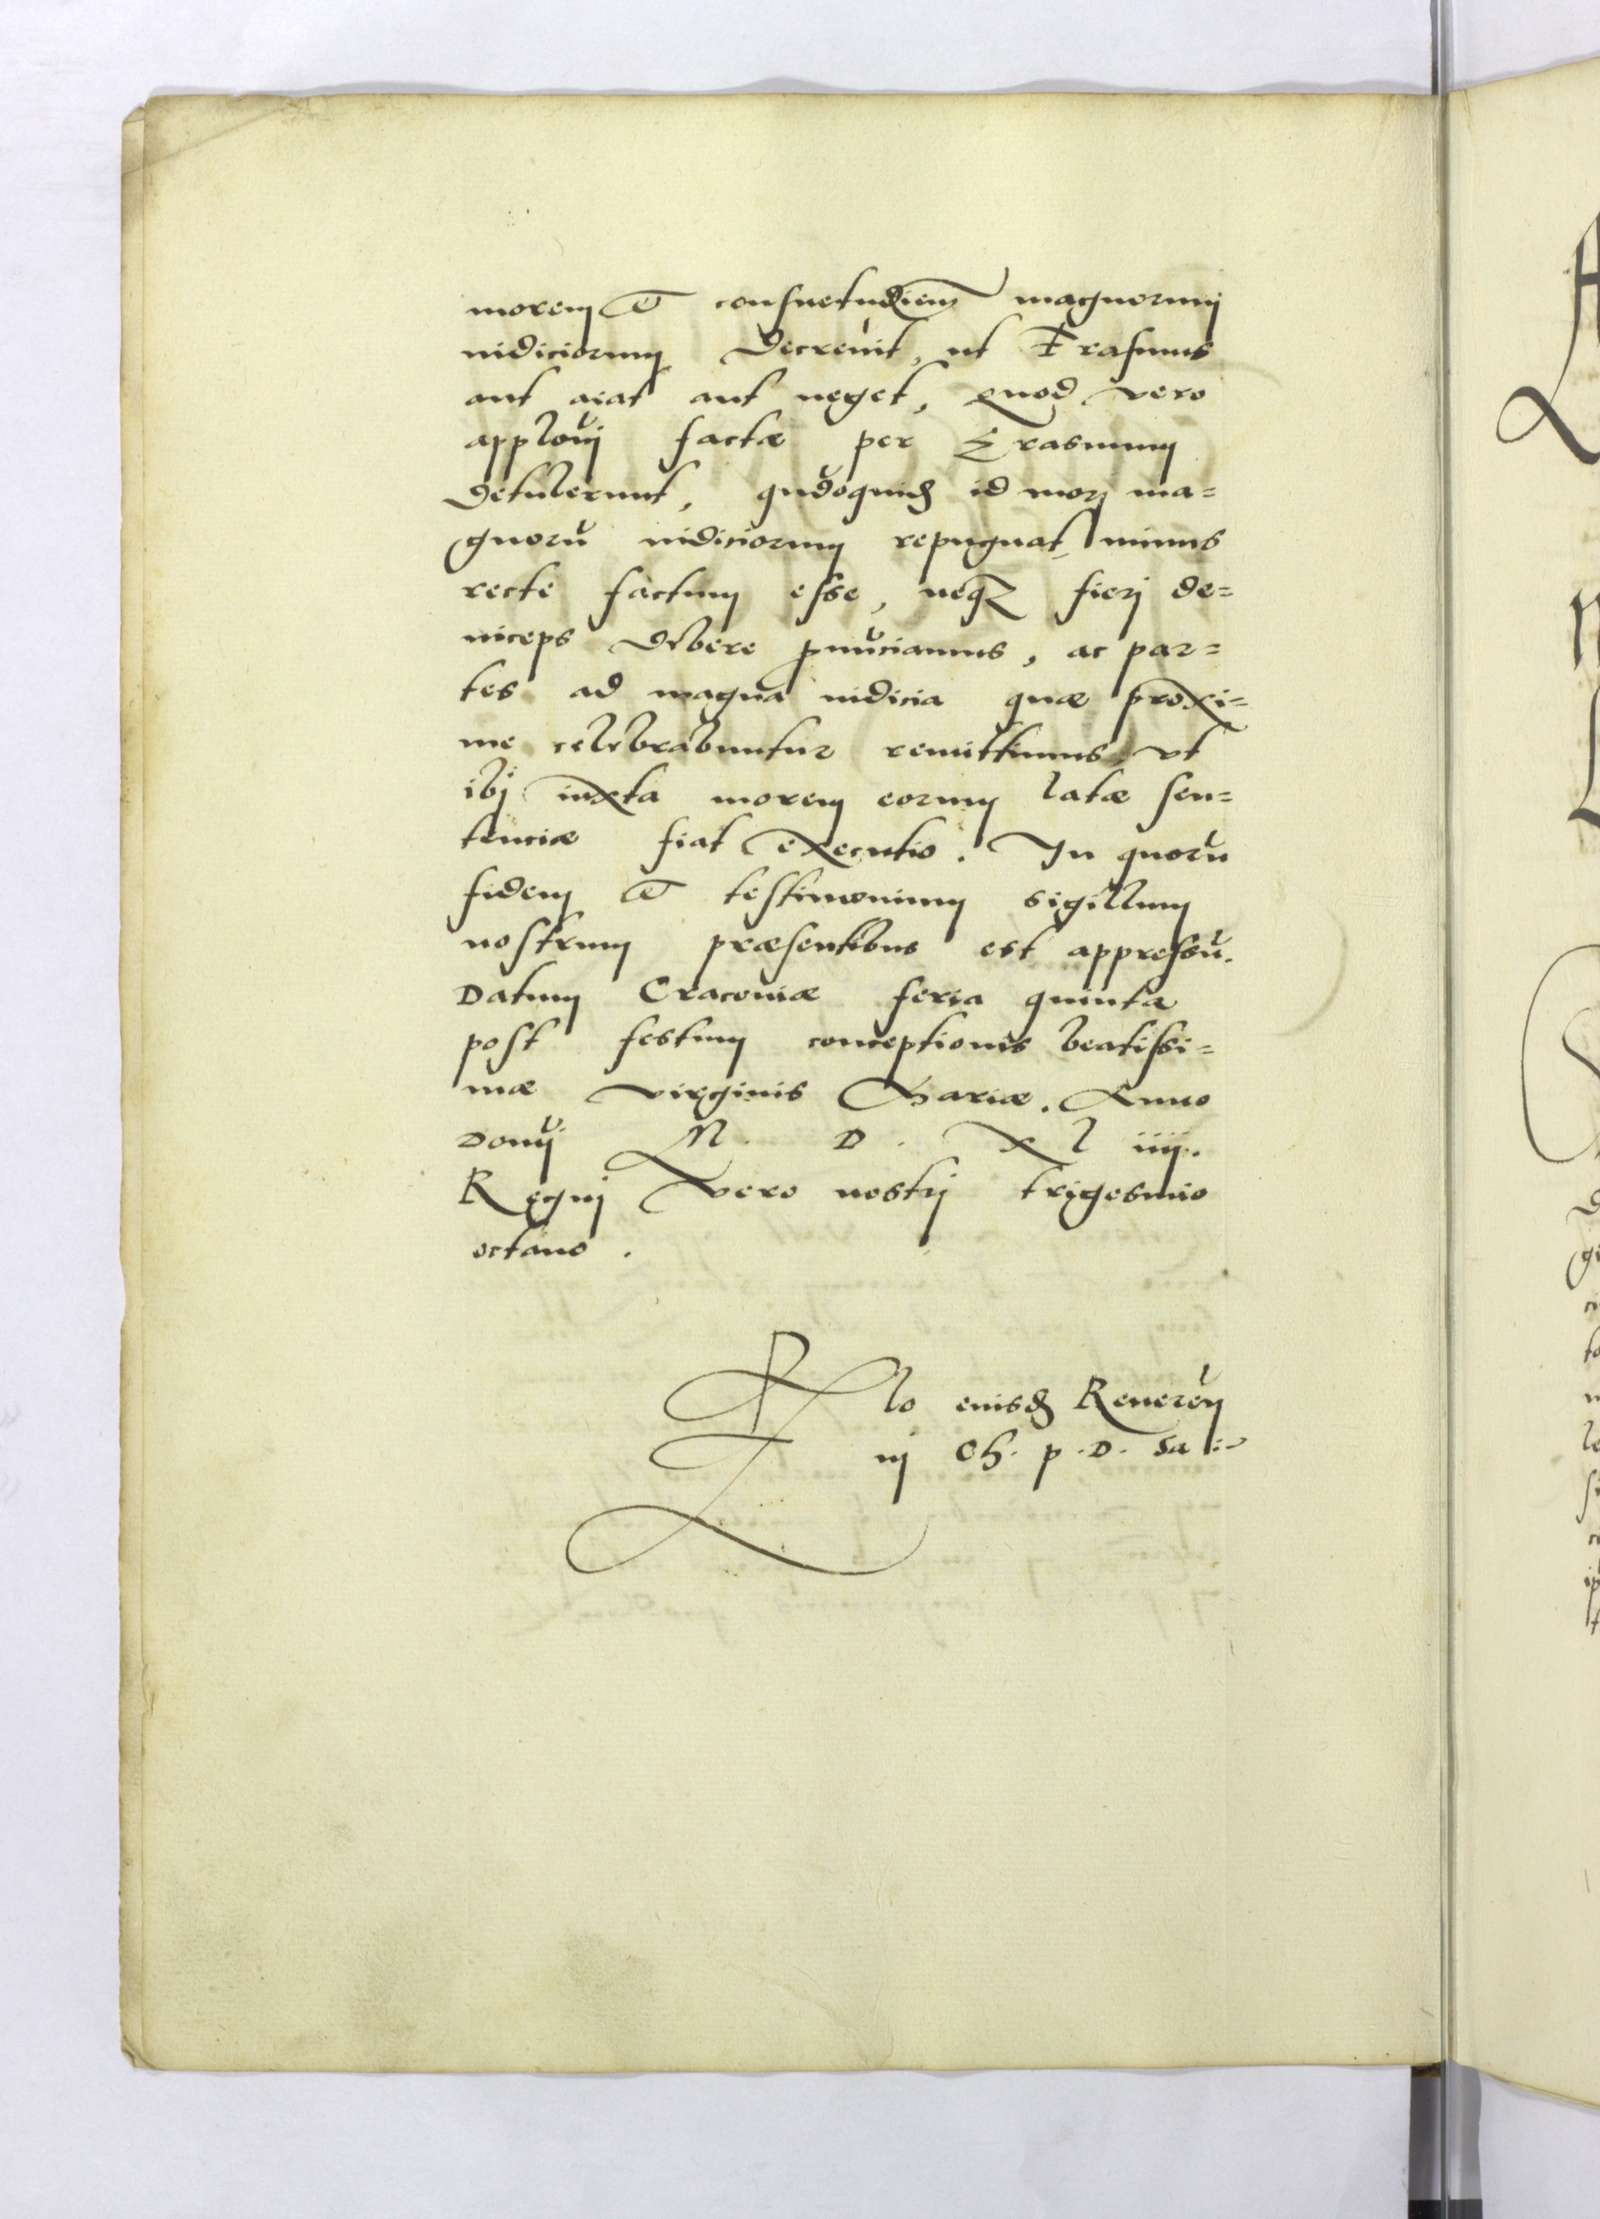 morem et consuetudinem magnorum
iudiciorum decreuit, ut Erasmus
aut aiat aut neget, Quod vero
applōnj factæ per Erasmum
detulerunt, quādoquidem id morj ma=
gnorū iudiciorum repugnat, minus
recte factum esse, neqꝫ fierj de=
inceps debere pnūciamus, ac par=
tes ad magna iudicia quæ proxi=
me celebrabuntur remittimus, vt
ibj iuxta morem eorum latæ sen=
tenciæ fiat Executio. In quorū
fidem et testimonium sigillum
nostrum præsentibus est appressū.
Datum Cracouiæ feria quinta
post festum conceptionis beatissi=
mæ virginis Mariæ. Anno
Domj M. D. XL iiij.
Regnj vero nostrj trigesimo
octauo.
Rlo eiusdem Reuerēn
Ch. p. D. Sa